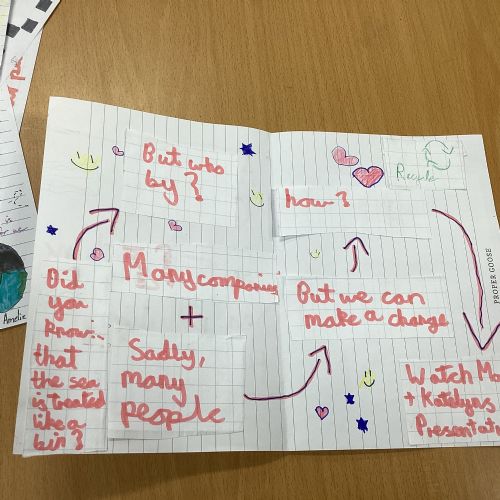 Did
you
know:-
that
the sea
is treated
like a
bin?
But who
by?
Many companies
+
Sadly,
many
people
But we can
make a change
how?
Recycle
Watch
+ Katelyns
PROPER GOOSE
Amelie